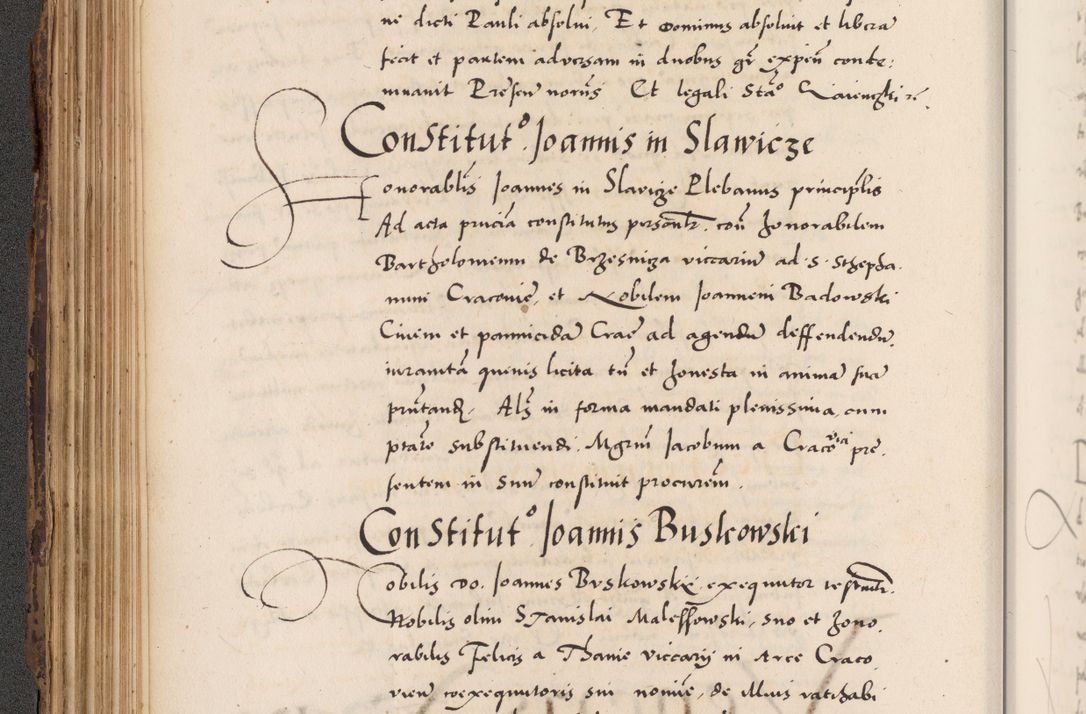 ne dicti Pauli absolui. Et dominus absoluit et libera
fecit et partem aduersam in duobus gr expen conde:
mnauit Presen norus Et legali Stao
Constituto. Joannis in Slawicze
Honorablis Joannes in Slavicze Plebanus principlis
Ad acta pncia constitutus personlr. con honorabilem
Bartholomeum de Brzesnicza viccariu ad S. Stepha.
num Cracouie, et Nobilem Joannem Badowski
Ciuem et pannicida Crac ad agendu deffendendu,
iuramta queuis licita tn et honesta in anima sua
prntand. Als in forma mandati plenissima, cum
ptate substituendi. Mgrum Jacobum a Cracouia pre.
sentem in Suu constituit procurem.
Constituto Joannis Buskowski
Nobilis do. Joannes Bvskowski exequutor testmti.
Nobilis olim Stanislai Malessowski, suo et hono.
rabilis Felicis a Thanie viccarij in Arce Craco.
vien coexequutoris sui nomie, de illius ratihabi